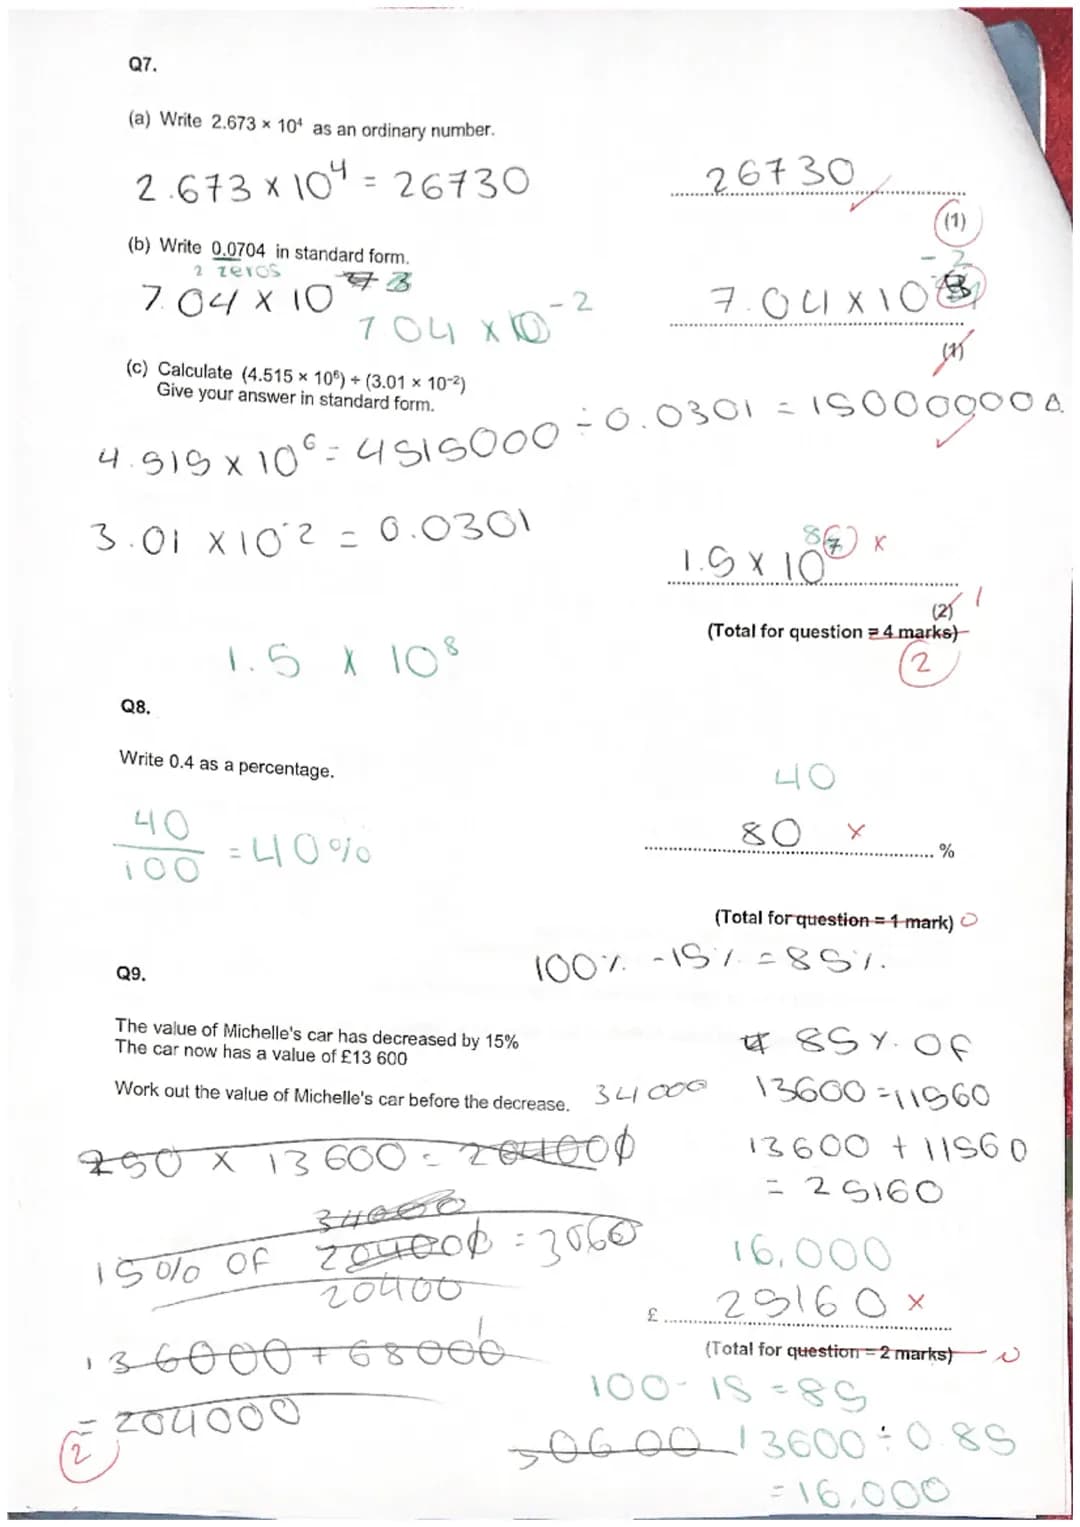 Q7.
(a) Write 2.673 × 10⁴ as an ordinary number.
2.673 × 10⁴ = 26730
26730
(1)
(b) Write 0.0704 in standard form.
2 zeros
7.04 × 10
- 2
7.04 × 10
704 × 10⁻²
(1)
(c) Calculate (4.515 × 10⁶) ÷ (3.01 × 10⁻²)
Give your answer in standard form.
4.515 × 10⁶ = 4515000 ÷ 0.0301 = 150000000
3.01 × 10⁻² = 0.0301
8
1.5 × 10⁷ ×
(2) 1
(Total for question = 4 marks)
2
1.5 × 10⁸
Q8.
Write 0.4 as a percentage.
40
40/100 = 40%
80 ×
%
(Total for question = 1 mark) 0
100% - 15% = 85%.
Q9.
The value of Michelle's car has decreased by 15%
The car now has a value of £13 600
Work out the value of Michelle's car before the decrease.
34000
85% OF
13600 = 11560
250 × 13600 = 204000
13600 + 11560
= 25160
34000
15% OF 204000 = 3060
20400
16,000
£ 25160 ×
(Total for question = 2 marks)
136000 + 68000
= 204000
2
100 - 15 = 85
30600 13600 ÷ 0.85
= 16,000